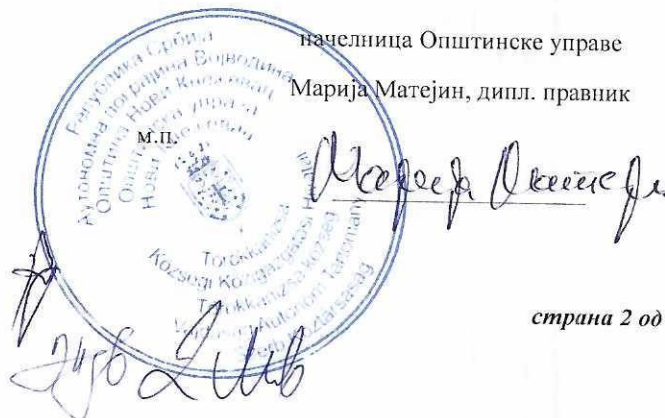 начелница Општинске управе
Марија Матејин, дипл. правник
м.п.
Република Србија
Аутономна покрајина Војводина
Општина Нови Кнежевац
Општинска управа
Нови Кнежевац
Törökkanizsa
Községi Közigazgatási Hivatal
Törökkanizsa község
Vajdaság Autonóm Tartomány
страна 2 од